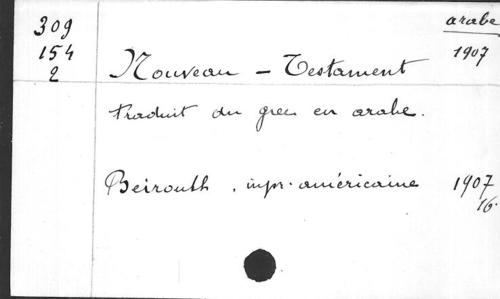 309 arabe
154 1907
2 Nouveau - Testament
traduit du grec en arabe.
Beirouth . impr. américaine 1907
16.